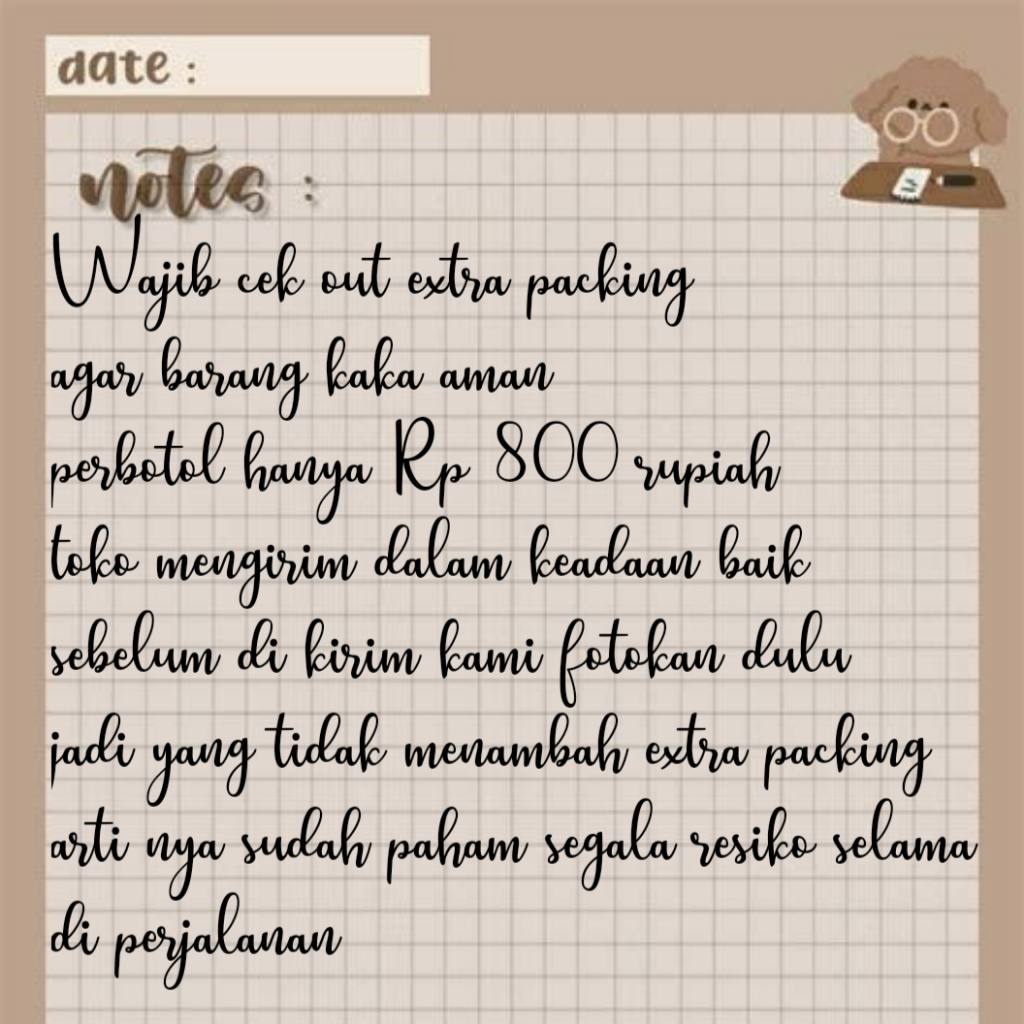 date :
notes :
Wajib cek out extra packing
agar barang kaka aman
perbotol hanya Rp 800 rupiah
toko mengirim dalam keadaan baik
sebelum di kirim kami fotokan dulu
jadi yang tidak menambah extra packing
arti nya sudah paham segala resiko selama
di perjalanan